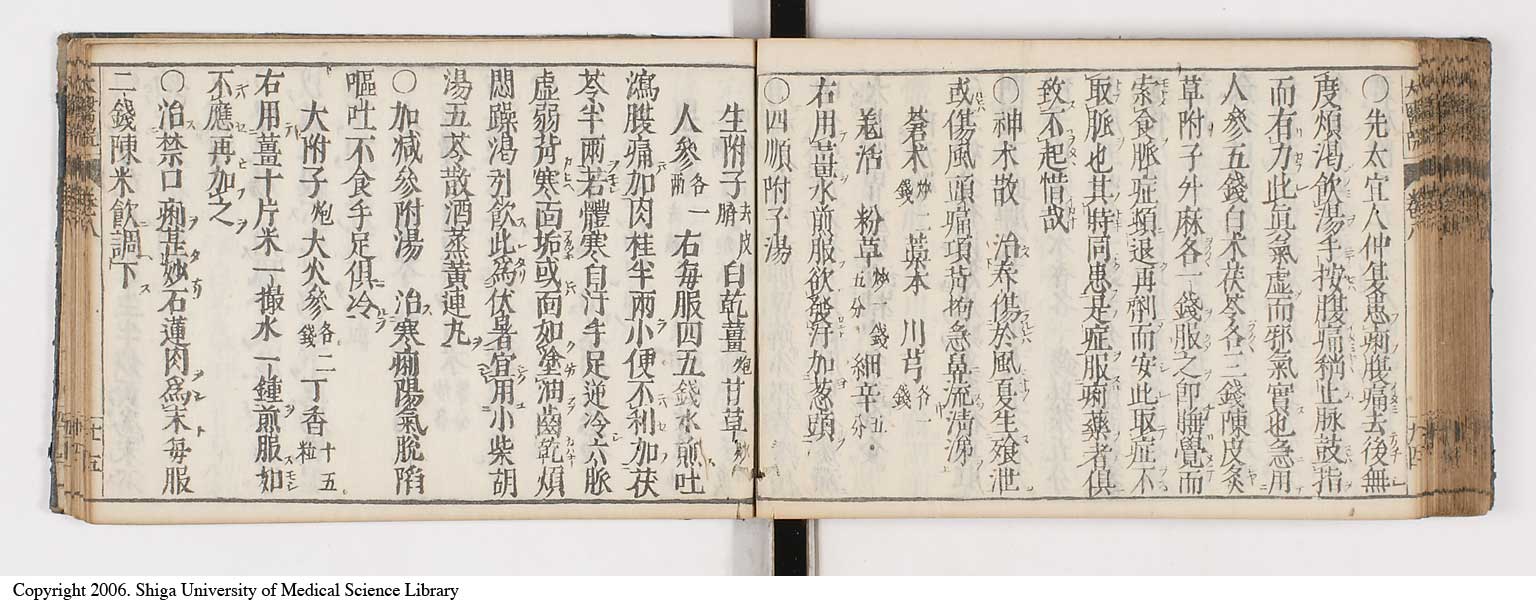 〇先太宜人仲夏患痢腹痛去後無
度煩渇飲湯手按腹痛稍止脉鼓指
而有力此眞氣虚而邪氣實也急用
人參五錢白朮茯苓各三錢陳皮炙
草附子升麻各一錢服之即睡覺而
索食脈症頓退再劑而安此取症不
取脈也其時同患是症服痢藥者俱
致不起惜哉
〇神朮散 治春傷於風夏生飧泄
或傷風頭痛項背拘急鼻流清涕
蒼朮炒二錢 藁本 川芎各一錢
羗活 粉草炒一錢五分 細辛五分
右用薑水煎服欲發汗加葱頭
〇四順附子湯
生附子去皮臍 白乾薑炮 甘草炒
人參各一兩 右每服四五錢水煎吐
瀉腹痛加肉桂半兩小便不利加茯
苓半兩若體寒自汗手足逆冷六脈
虚弱背寒面垢或面如塗油齒乾煩
悶躁渇引飲此爲伏暑宜用小柴胡
湯五苓散酒蒸黄連丸
〇加减參附湯 治寒痢陽氣脫陷
嘔吐不食手足俱冷
大附子炮 大人參各二錢 丁香十五粒
右用薑十片米一撮水一鍾煎服如
不應再加之
〇治禁口痢甚妙石蓮肉爲末每服
二錢陳米飲調下
Copyright 2006. Shiga University of Medical Science Library